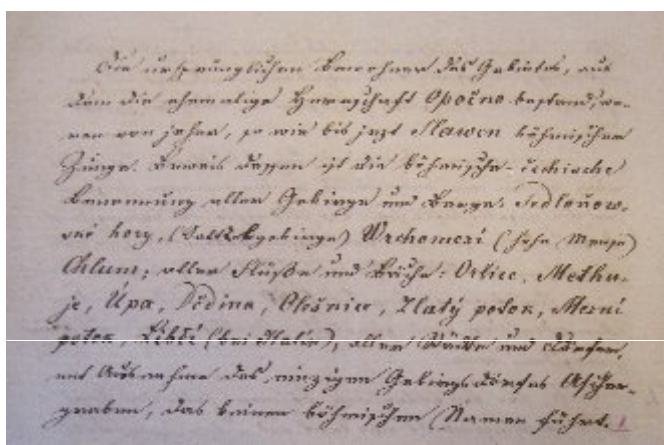 Die ursprünglichen Bewohner des Gebietes, aus
dem die ehemalige Herrschaft Opočno bestand, wa-
ren von jeher, so wie bis jezt Slawen böhmischer
Zunge. Beweis dessen ist die böhmische - čechische
Benennung aller Gebirge und Berge: Sedloňow-
ské hory, (Sattelgebirge) Wrchmezí (hohe Mense)
Chlum; aller Flüße und Bäche: Orlice, Methu-
je, Úpa, Dědina, Olešnice, Zlatý potok, Mezní
potok, (bei Slatin), aller Städte und Dörfer,
mit Ausnahme des einzigen Gebirgsdorfes Ascher-
graben, das keinen böhmischen Namen führt.